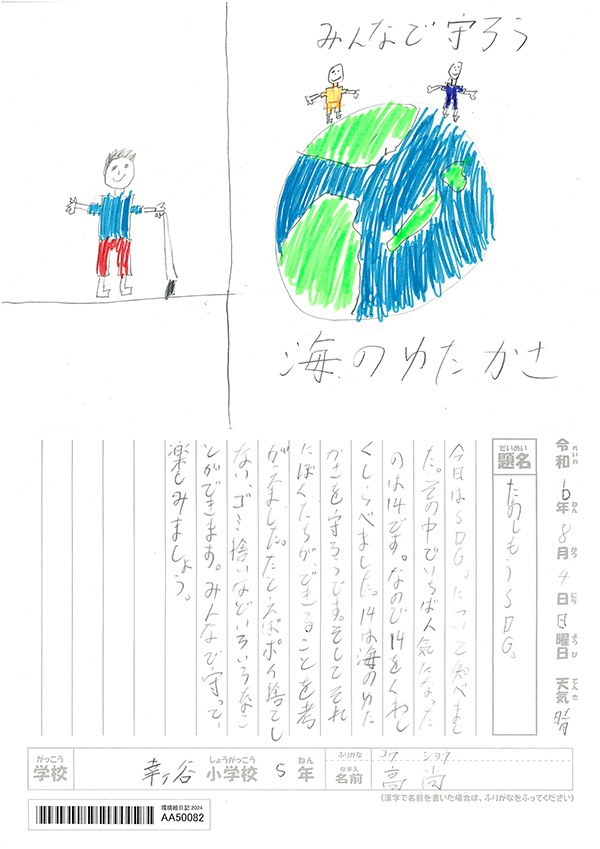 みんなで守ろう
海のゆたかさ
令和6年8月4日日曜日 天気晴
れいわ ねん がつ にち ようび てんき
だいめい
題名
たのしもうSDGs
今日はSDGsについて調べまし
た。その中でいちばん人気になった
のは14です。なので14をくわし
くしらべました。14は海のゆた
かさを守ろうです。そしてそれ
にぼくたちができることを考
がえました。たとえばポイ捨てし
ない、ゴミ拾いなどいろいろなこ
とができます。みんなで守って、
楽しみましょう。
がっこう
学校
幸ヶ谷小学校5年
しょうがっこう ねん
ふりがな
コウ ショウ
なまえ
名前
高尚
(漢字で名前を書いた場合は、ふりがなをふってください)
環境絵日記2024
AA50082